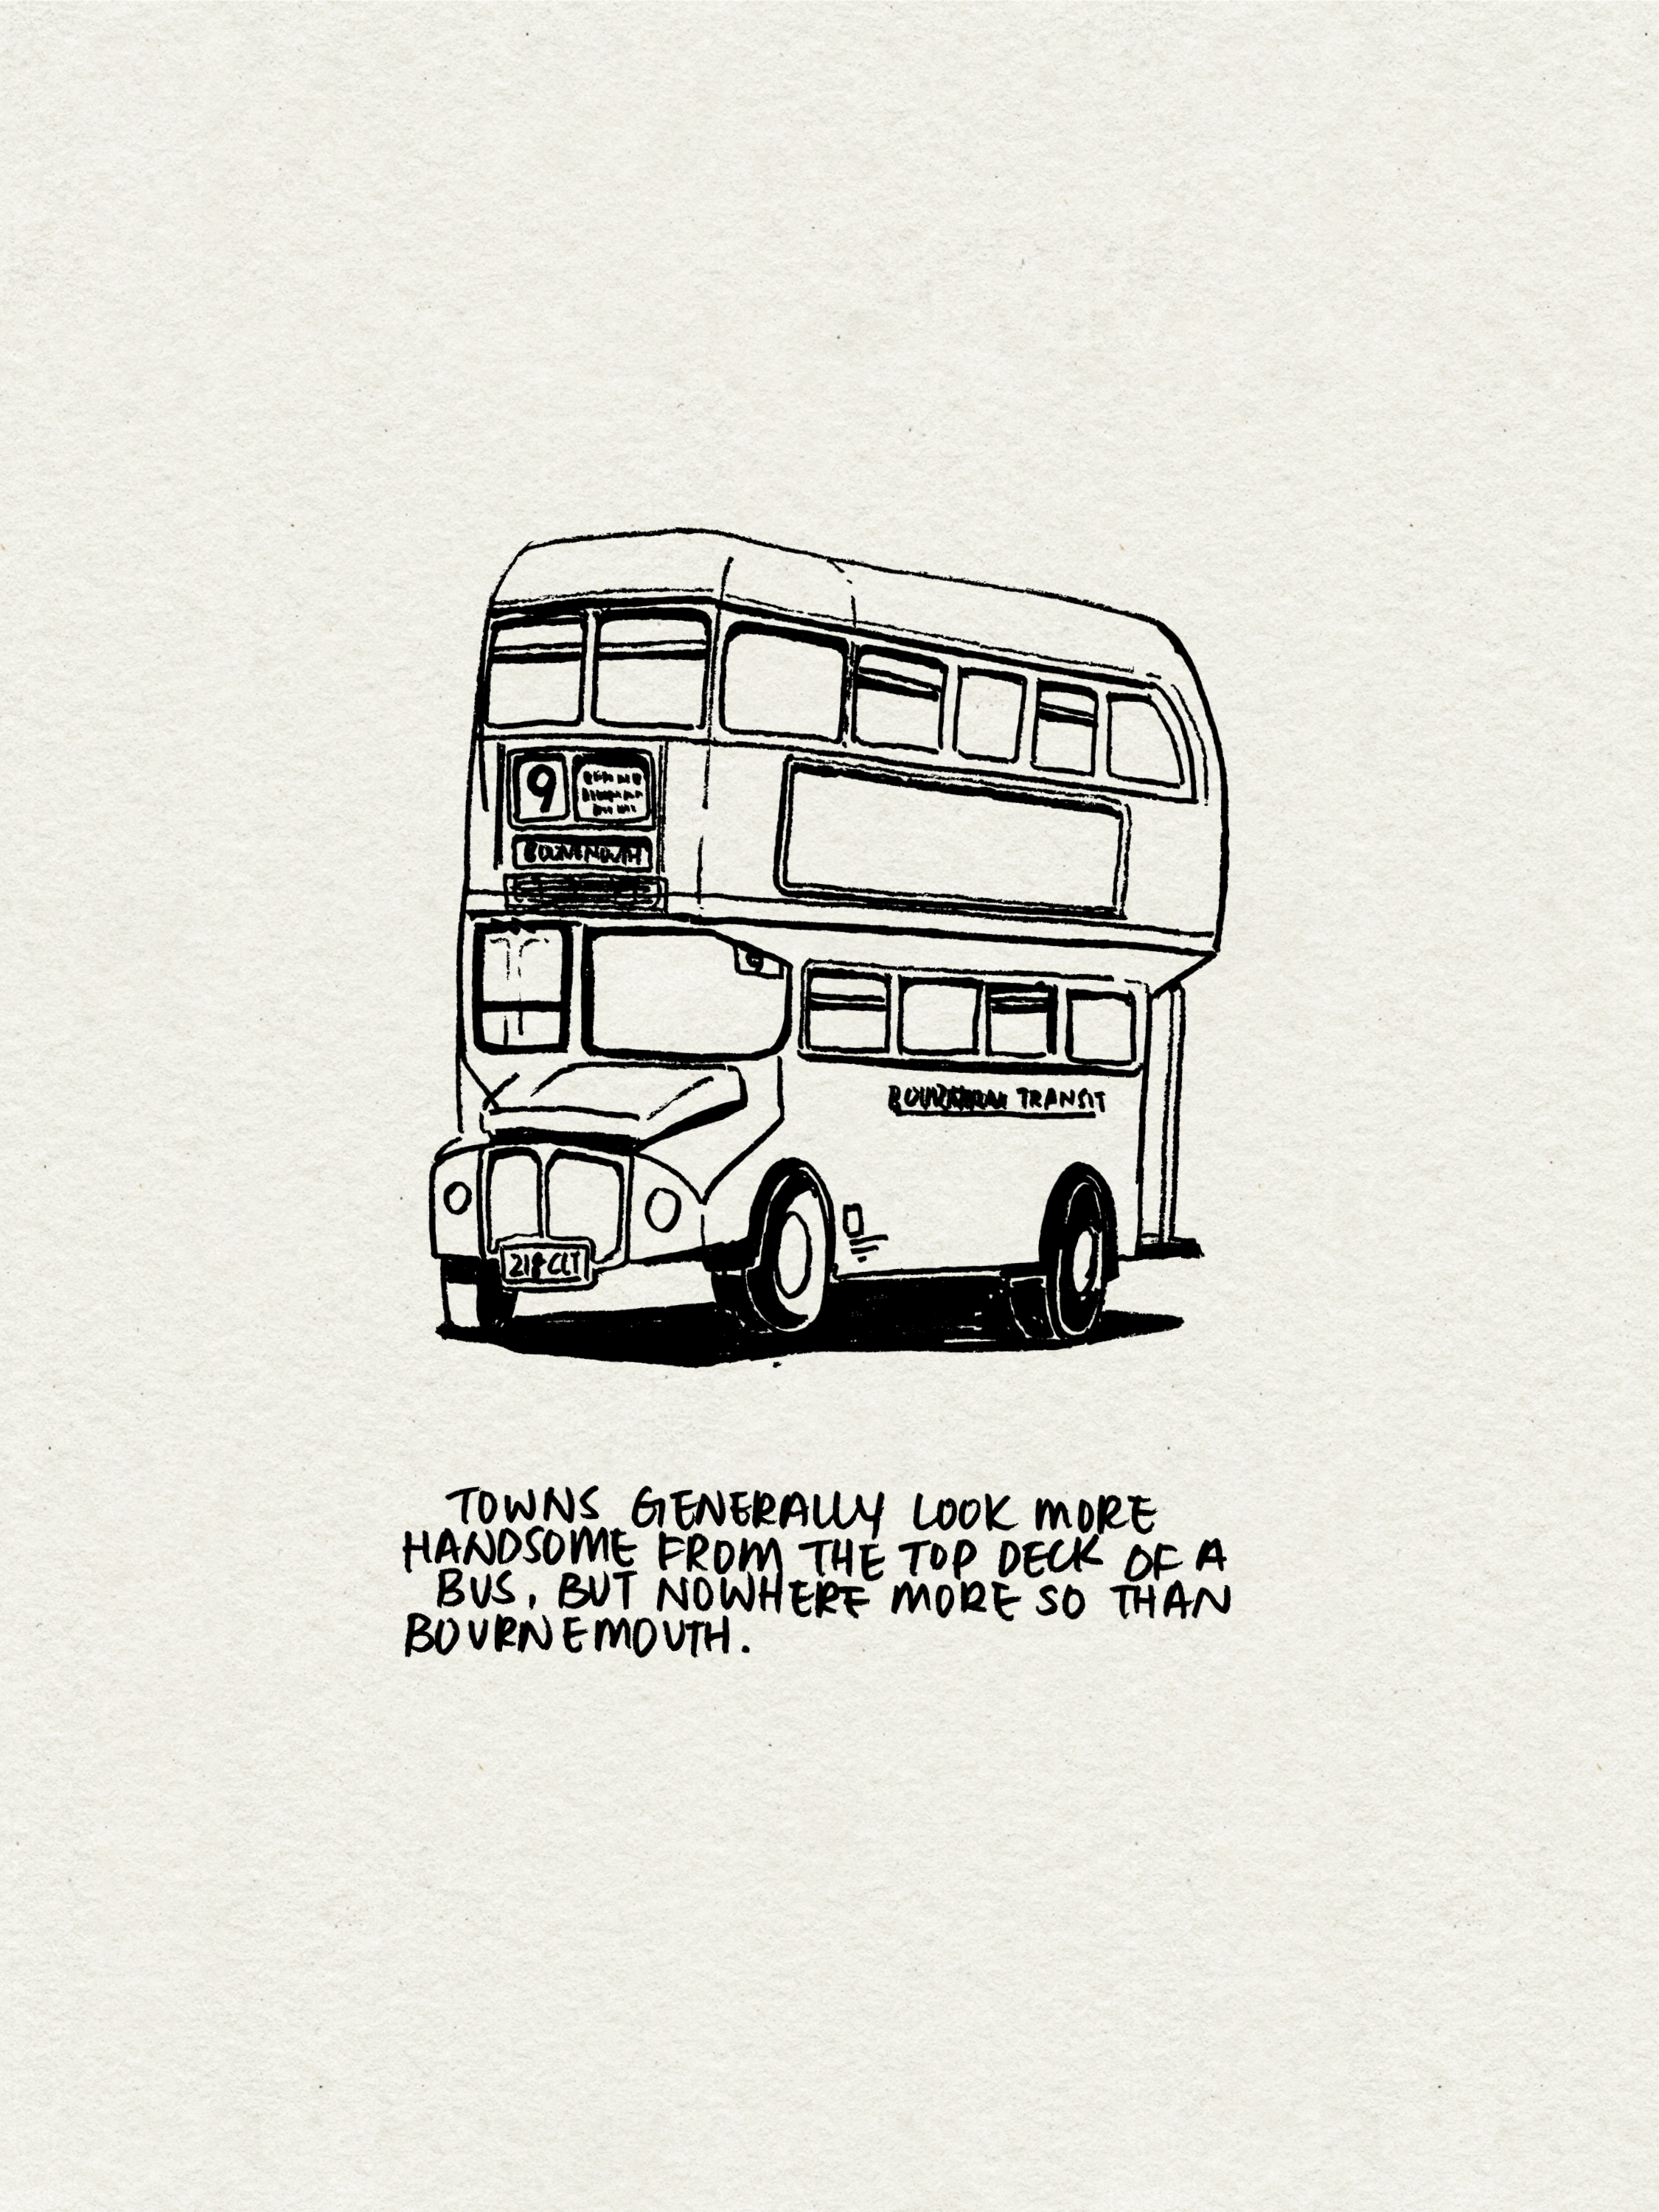 9
BOURNEMOUTH
TRANSIT
TOWNS GENERALLY LOOK MORE
HANDSOME FROM THE TOP DECK OF A
BUS, BUT NOWHERE MORE SO THAN
BOURNEMOUTH.